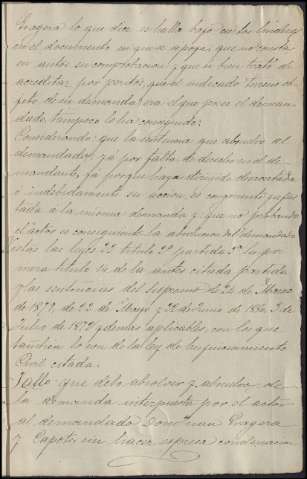 Fragera lo que dice se halla bajo con los linderos
en el documento en que se apoya que no consta
en autos su comprobacion, y que si bien trató de
acreditar por peritos, que el indicado terreno ob-
jeto de su demanda era el que posee el deman-
dado tampoco lo ha conseguido.
Considerando que la sentencia que absuelve al
demandado, yá por falta de derecho en el de-
mandante, yá porque haya deducido
é indebidamente su accion, es congruente y ajus-
tada á la misma demanda y que no probando
el actor es consiguiente la absolucion del demandado
Vistas las leyes titulo 2º partida 3ª la pri-
mera titulo 14 de la antes citada partida
y las sentencias del Supremo de de Marzo
de 1879, de 22 de Mayo y de Junio de 3 de
Julio de y demas aplicables, con las que
tambien lo son de la ley de Enjuiciamiento
Civil citada.
Fallo: que debo absolver y absuelvo de
la demanda interpuesta por el actor
al demandado Don Juan Fragera
y Capote sin hacer espresa condenacion